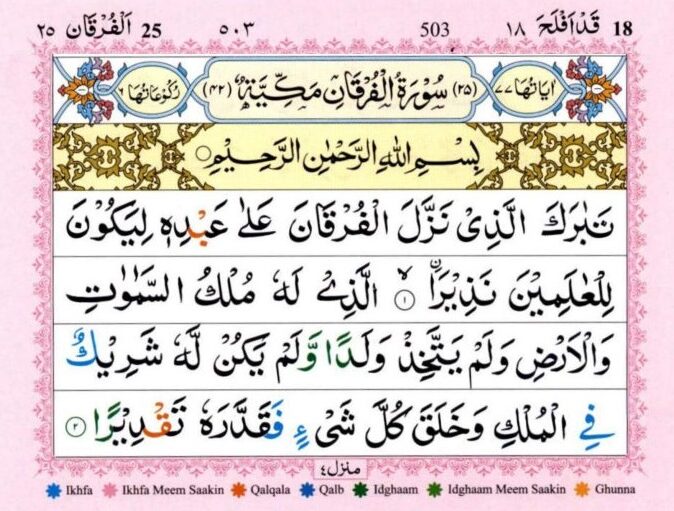 ٢٥ اَلْفُرْقَان 25 ٥٠٣ 503 ١٨ قَدْ اَفْلَحَ 18
اٰيَاتُهَا ٧٧ (٢٥) سُوْرَةُ الْفُرْقَانِ مَكِّيَّةٌ (٤٢) رُكُوْعَاتُهَا ٦
بِسْمِ اللّٰهِ الرَّحْمٰنِ الرَّحِيْمِ
تَبٰرَكَ الَّذِىْ نَزَّلَ الْفُرْقَانَ عَلٰى عَبْدِهٖ لِيَكُوْنَ
لِلْعٰلَمِيْنَ نَذِيْرَاۙ ۝١ الَّذِىْ لَهٗ مُلْكُ السَّمٰوٰتِ
وَالْاَرْضِ وَلَمْ يَتَّخِذْ وَلَدًا وَّلَمْ يَكُنْ لَّهٗ شَرِيْكٌ
فِى الْمُلْكِ وَخَلَقَ كُلَّ شَىْءٍ فَقَدَّرَهٗ تَقْدِيْرًا ۝٢
منزل ٤
Ikhfa Ikhfa Meem Saakin Qalqala Qalb Idghaam Idghaam Meem Saakin Ghunna